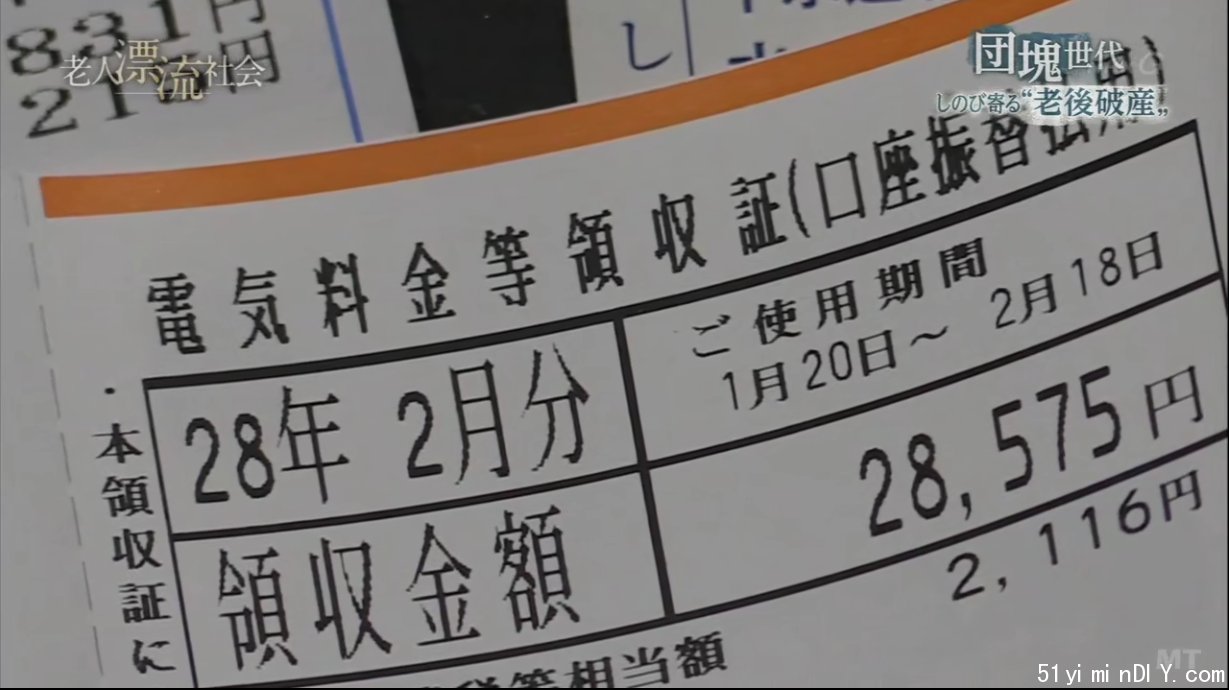 831円
老人漂流社会
団塊世代
しのび寄る“老後破産”
し
電気料金等領収証(口座振替払用)
28年 2月分
ご使用期間
1月20日～ 2月18日
領収金額
28,575円
2,116円
税等相当額
・本領収証に
MT
51yiminDIY.com